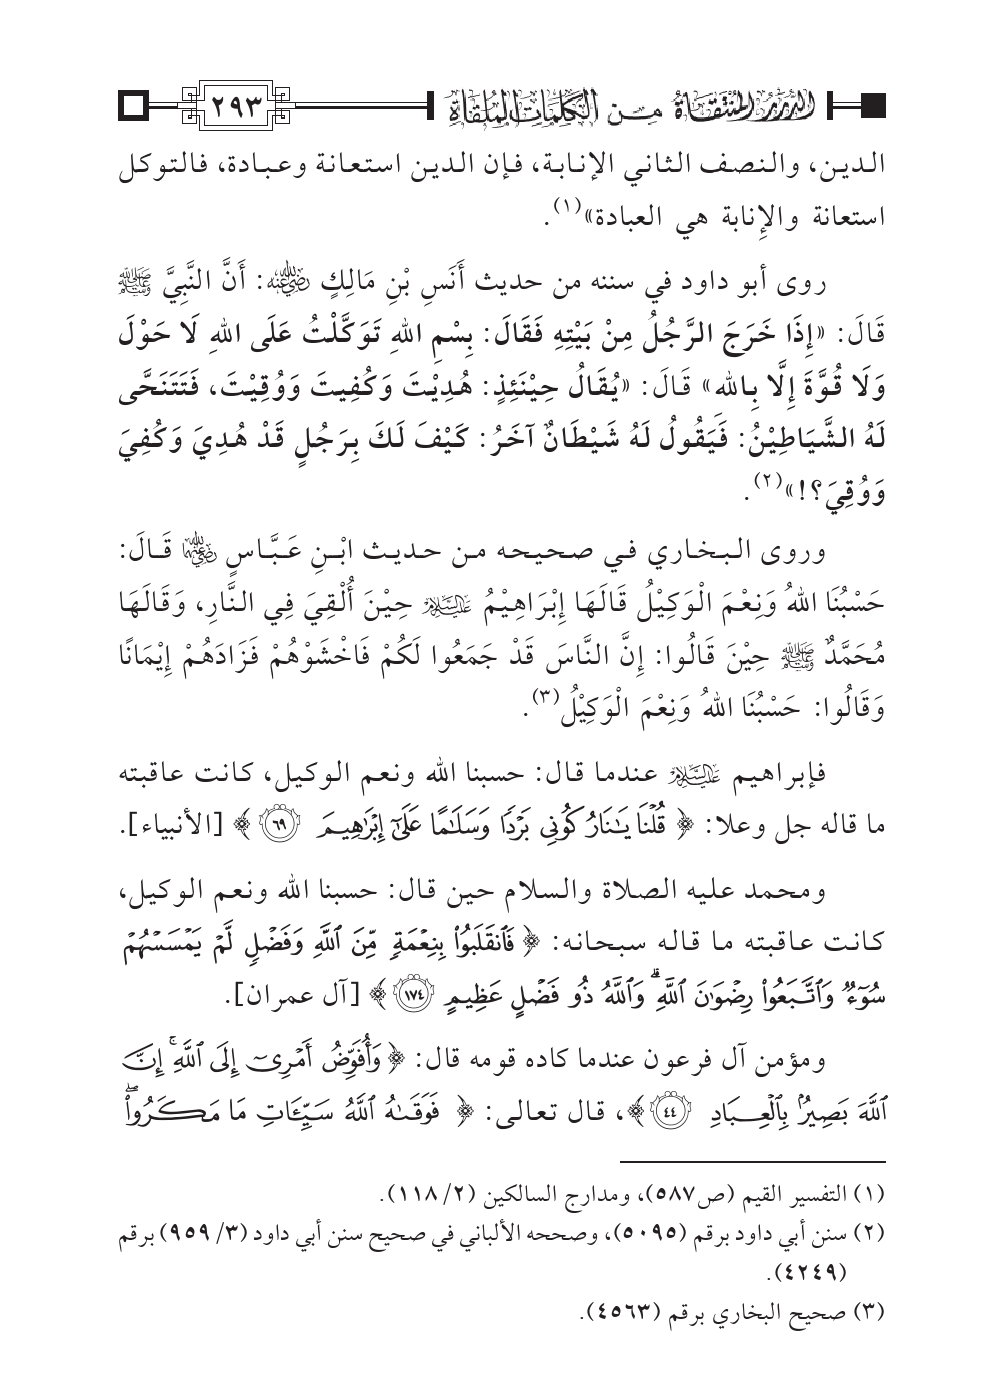 الدرر المنتقاة من الكلمات الملقاة ٢٩٣
الدين، والنصف الثاني الإنابة، فإن الدين استعانة وعبادة، فالتوكل
استعانة والإنابة هي العبادة»(١).
روى أبو داود في سننه من حديث أَنَسِ بْنِ مَالِكٍ رضي الله عنه: أَنَّ النَّبِيَّ ﷺ
قَالَ: «إِذَا خَرَجَ الرَّجُلُ مِنْ بَيْتِهِ فَقَالَ: بِسْمِ اللهِ تَوَكَّلْتُ عَلَى اللهِ لَا حَوْلَ
وَلَا قُوَّةَ إِلَّا بِالله» قَالَ: «يُقَالُ حِيْنَئِذٍ: هُدِيْتَ وَكُفِيتَ وَوُقِيْتَ، فَتَتَنَحَّى
لَهُ الشَّيَاطِيْنُ: فَيَقُولُ لَهُ شَيْطَانٌ آخَرُ: كَيْفَ لَكَ بِرَجُلٍ قَدْ هُدِيَ وَكُفِيَ
وَوُقِيَ؟!»(٢).
وروى البخاري في صحيحه من حديث ابْنِ عَبَّاسٍ رضي الله عنهما قَالَ:
حَسْبُنَا اللهُ وَنِعْمَ الْوَكِيْلُ قَالَهَا إِبْرَاهِيْمُ عليه السلام حِيْنَ أُلْقِيَ فِي النَّارِ، وَقَالَهَا
مُحَمَّدٌ ﷺ حِيْنَ قَالُوا: إِنَّ النَّاسَ قَدْ جَمَعُوا لَكُمْ فَاخْشَوْهُمْ فَزَادَهُمْ إِيْمَانًا
وَقَالُوا: حَسْبُنَا اللهُ وَنِعْمَ الْوَكِيْلُ(٣).
فإبراهيم عليه السلام عندما قال: حسبنا الله ونعم الوكيل، كانت عاقبته
ما قاله جل وعلا: ﴿ قُلْنَا يَٰنَارُ كُونِى بَرْدًا وَسَلَٰمًا عَلَىٰٓ إِبْرَٰهِيمَ ٦٩ ﴾ [الأنبياء].
ومحمد عليه الصلاة والسلام حين قال: حسبنا الله ونعم الوكيل،
كانت عاقبته ما قاله سبحانه: ﴿ فَٱنقَلَبُوا۟ بِنِعْمَةٍ مِّنَ ٱللَّهِ وَفَضْلٍ لَّمْ يَمْسَسْهُمْ
سُوٓءٌ وَٱتَّبَعُوا۟ رِضْوَٰنَ ٱللَّهِ ۗ وَٱللَّهُ ذُو فَضْلٍ عَظِيمٍ ١٧٤ ﴾ [آل عمران].
ومؤمن آل فرعون عندما كاده قومه قال: ﴿ وَأُفَوِّضُ أَمْرِىٓ إِلَى ٱللَّهِ ۚ إِنَّ
ٱللَّهَ بَصِيرٌۢ بِٱلْعِبَادِ ٤٤ ﴾، قال تعالى: ﴿ فَوَقَىٰهُ ٱللَّهُ سَيِّـَٔاتِ مَا مَكَرُوا۟ ۖ
(١) التفسير القيم (ص٥٨٧)، ومدارج السالكين (٢/ ١١٨).
(٢) سنن أبي داود برقم (٥٠٩٥)، وصححه الألباني في صحيح سنن أبي داود (٣/ ٩٥٩) برقم
(٤٢٤٩).
(٣) صحيح البخاري برقم (٤٥٦٣).